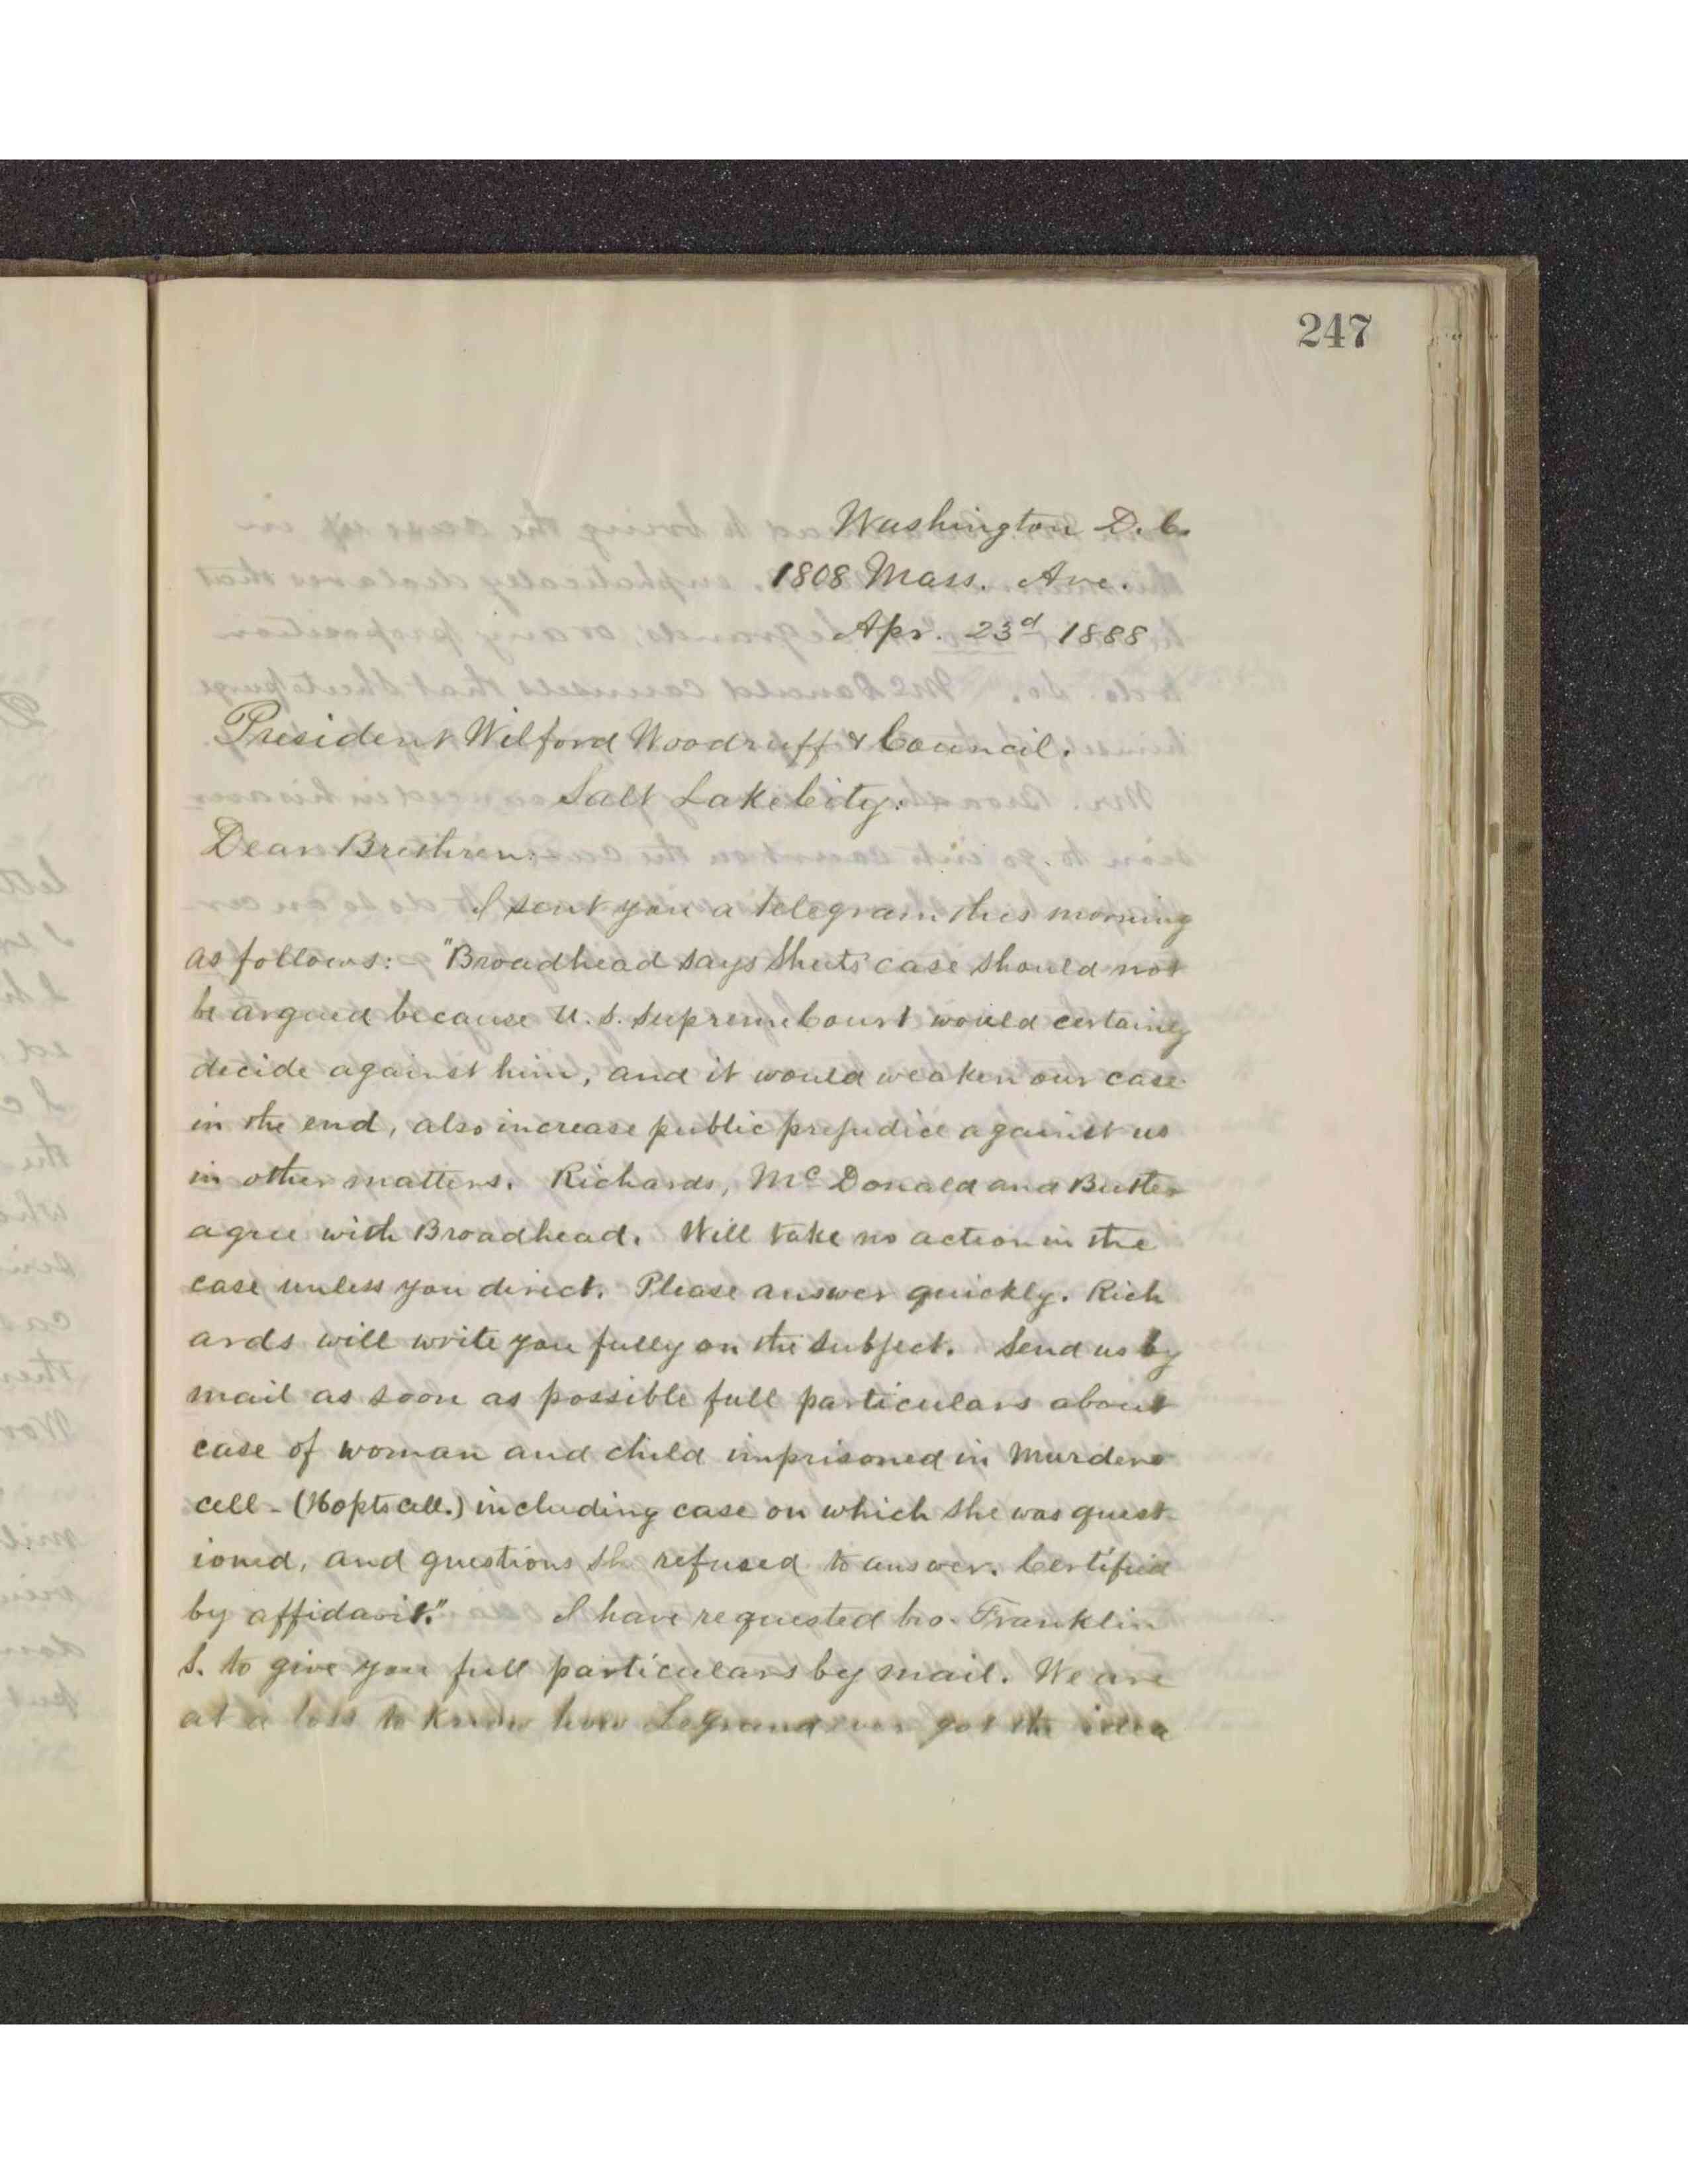 247
Washington D.C.
1808 Mass. Ave.
Apr. 23d 1888
President Wilford Woodruff & Council.
Salt Lake City.
Dear Brethren:
I sent you a telegram this morning
as follows: "Broadhead says Sheets' case should not
be argued because U.S. Supreme Court would certainly
decide against him, and it would weaken our case
in the end, also increase public prejudice against us
in other matters. Richards, McDonald and Butler
agree with Broadhead. Will take no action in the
case unless you direct. Please answer quickly. Rich
ards will write you fully on the subject. Send us by
mail as soon as possible full particulars about
case of woman and child imprisoned in Murderers
cell - (Hopts cell.) including case on which she was quest
ioned, and questions she refused to answer. Certified
by affidavit." I have requested bro. Franklin
S. to give you full particulars by mail. We are
at a loss to know how Legrand ever got the idea